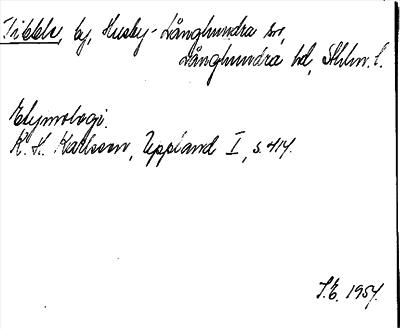 Tibble, by, Husby-Långhundra sn,
Långhundra hd, Sthlm. l.
Etymologi.
K. H. Karlsson, Uppland I, s. 414.
S.E. 1954.